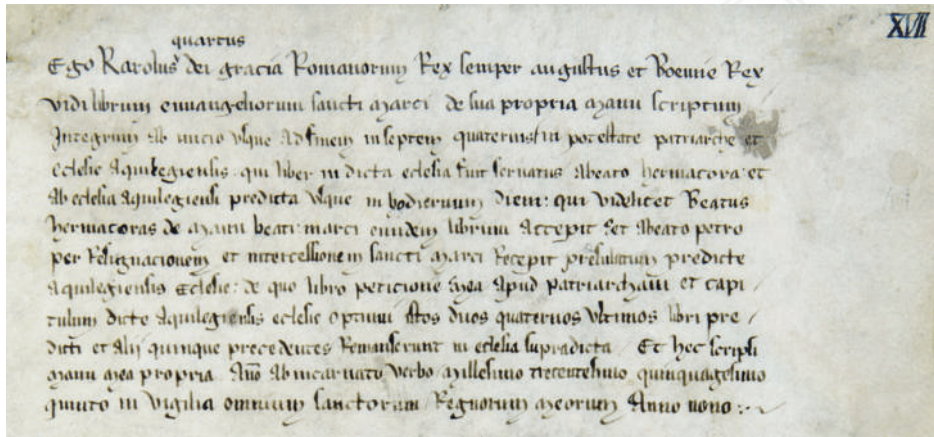 XVII
quartus
Ego Karolus dei gracia Romanorum Rex semper augustus et Boemie Rex
vidi librum ewangeliorum sancti Marci de sua propria manu scriptum
Integrum ab inicio usque ad finem in septem quaternis in potestate patriarche et
ecclesie Aquilegiensis. qui liber in dicta eclesia fuit servatus Abeato hermacora et
ab eclesia Aquilegiensi predicta usque in hodiernum diem: qui videlicet Beatus
hermacoras de manu beati marci eundem librum Accepit et Abeato petro
per Resignacionem et intercessionem sancti marci Recepit presulatum predicte
Aquilegiensis Eclesie: de quo libro peticione mea apud patriarcham et capi
tulum dicte Aquilegiensis eclesie optinui istos duos quaternos ultimos libri pre
dicti et alii quinque precedentes Remanserunt in eclesia supradicta. Et hec scripsi
manu mea propria. Anno Ab incarnato verbo millesimo trecentesimo quinquagesimo
quinto in vigilia omnium sanctorum Regnorum meorum Anno nono: